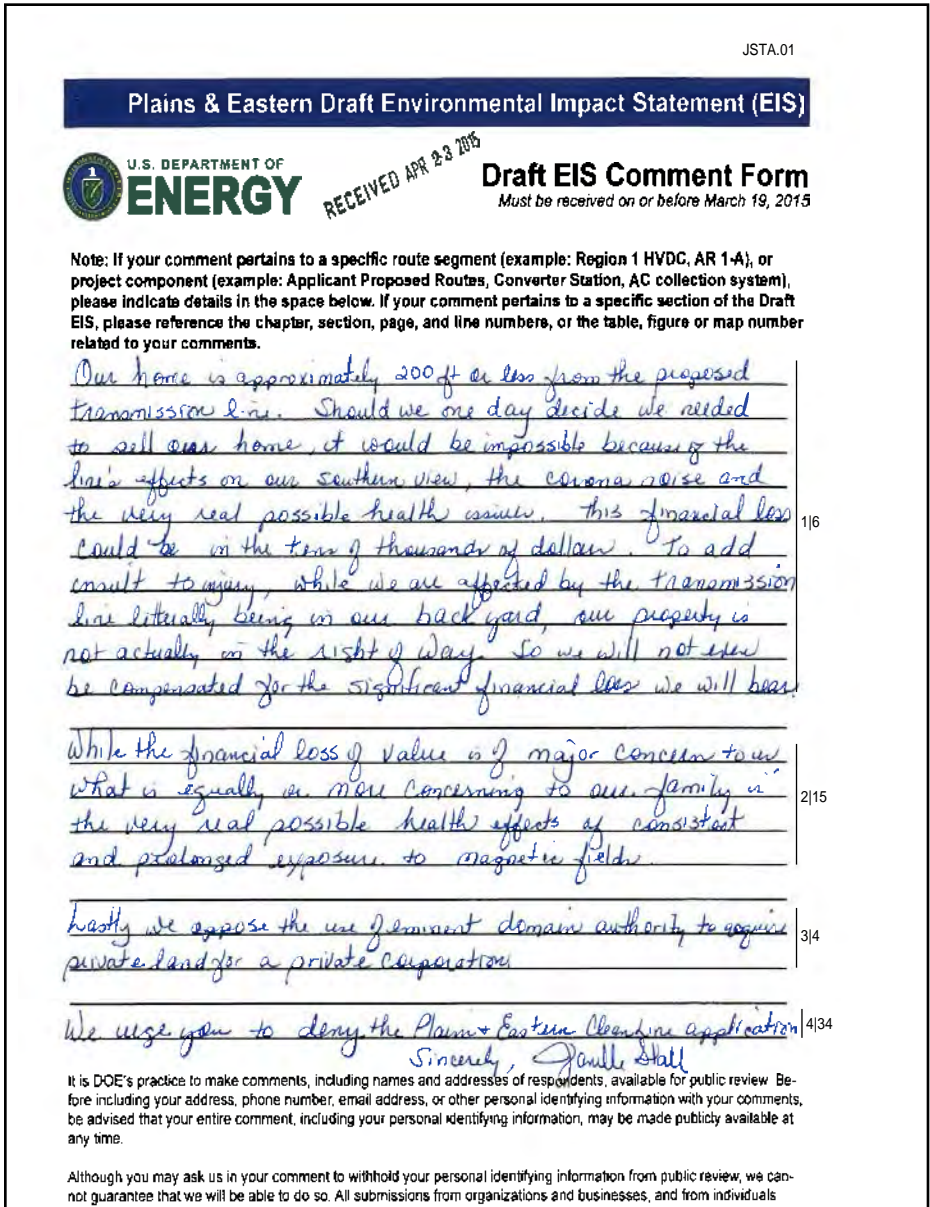 JSTA.01
Plains & Eastern Draft Environmental Impact Statement (EIS)
U.S. DEPARTMENT OF
ENERGY
RECEIVED APR 23 2015
Draft EIS Comment Form
Must be received on or before March 19, 2015
Note: If your comment pertains to a specific route segment (example: Region 1 HVDC, AR 1-A), or
project component (example: Applicant Proposed Routes, Converter Station, AC collection system),
please indicate details in the space below. If your comment pertains to a specific section of the Draft
EIS, please reference the chapter, section, page, and line numbers, or the table, figure or map number
related to your comments.
Our home is approximately 200 ft or less from the proposed
transmission line. Should we one day decide we needed
to sell our home, it would be impossible because of the
line's effects on our southern view, the corona noise and
the very real possible health issues. This financial loss
1|6
could be in the tens of thousands of dollars. To add
insult to injury, while we are affected by the transmission
line litterally being in our back yard, our property is
not actually in the right of way. So we will not even
be compensated for the significant financial loss we will bear
While the financial loss of value is of major concern to us
what is equally or more concerning to our family is
2|15
the very real possible health effects of consistent
and prolonged exposure to magnetic fields.
Lastly we oppose the use of eminent domain authority to acquire
3|4
private land for a private corporation
We urge you to deny the Plains & Eastern Clean Line application
4|34
Sincerely, Hall
It is DOE's practice to make comments, including names and addresses of respondents, available for public review. Be-
fore including your address, phone number, email address, or other personal identifying information with your comments,
be advised that your entire comment, including your personal identifying information, may be made publicly available at
any time.
Although you may ask us in your comment to withhold your personal identifying information from public review, we can-
not guarantee that we will be able to do so. All submissions from organizations and businesses, and from individuals